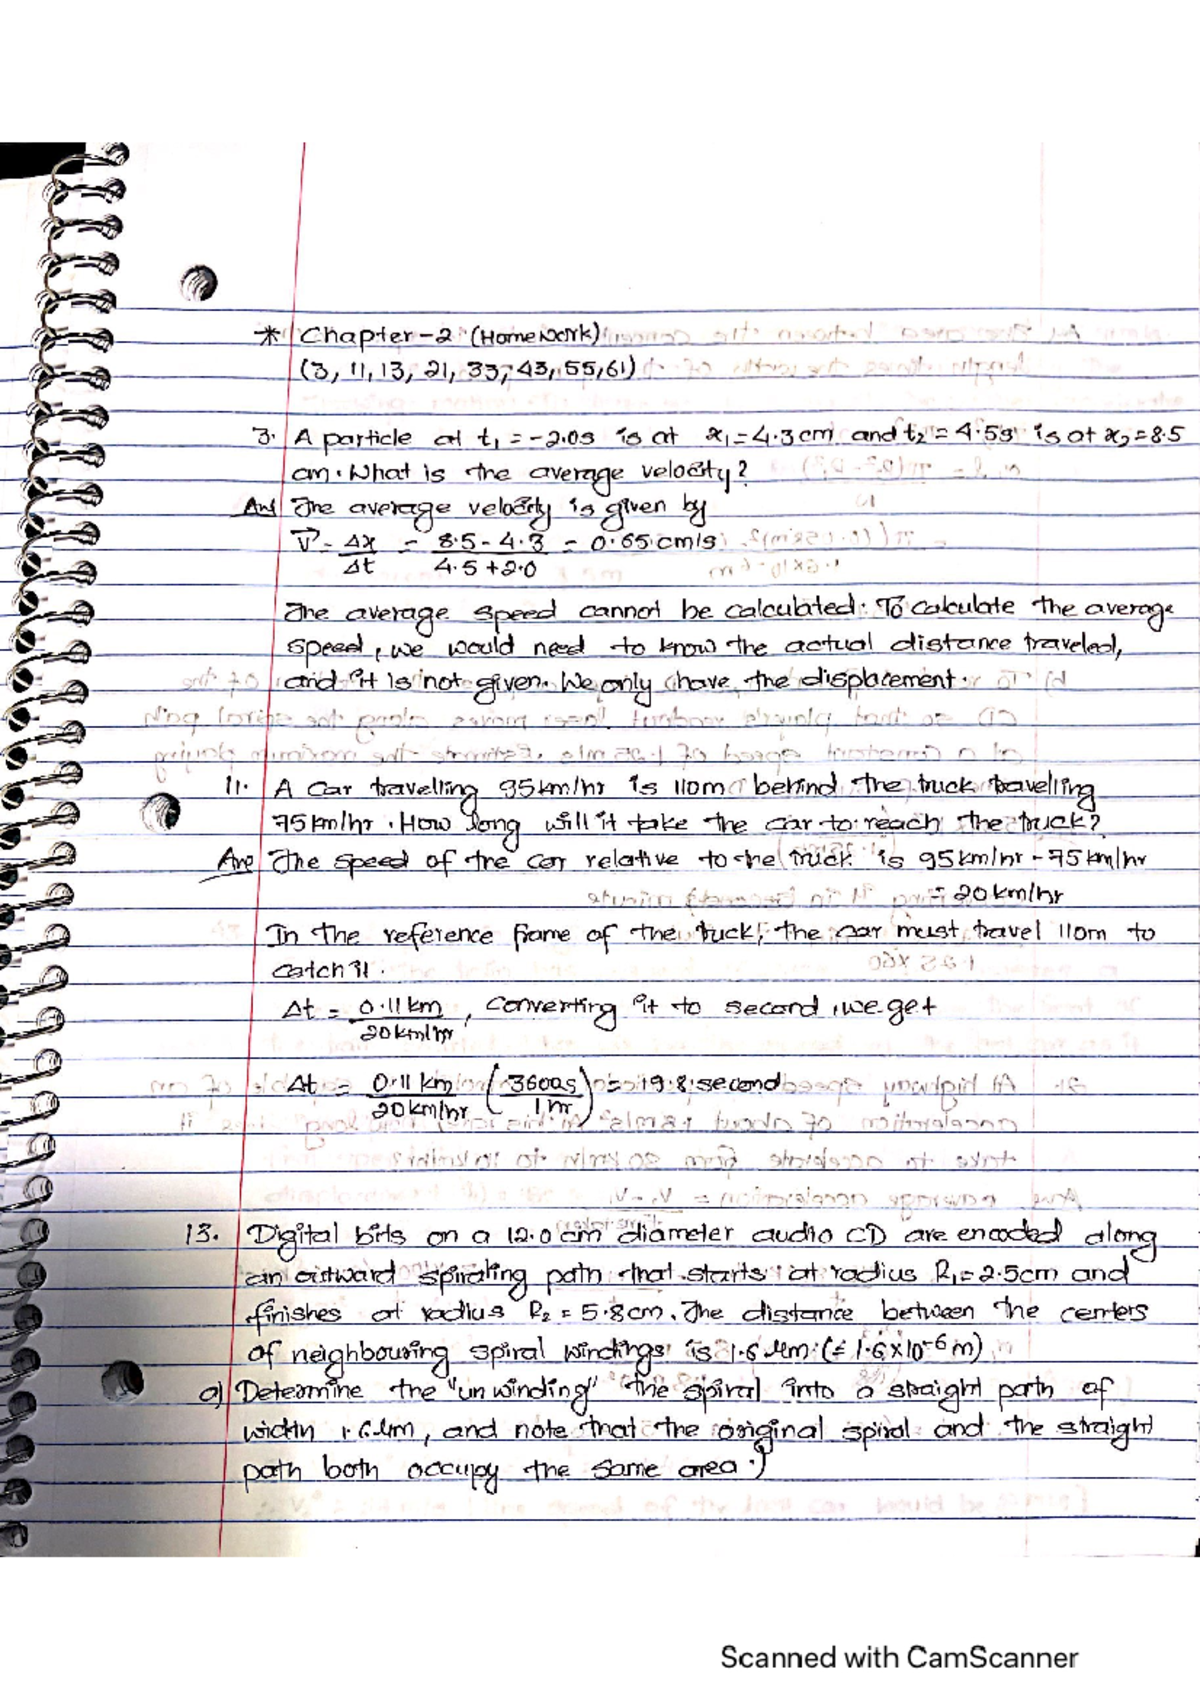 * Chapter-2 (Homework)
(3, 11, 13, 21, 33, 43, 55, 61)
3. A particle at t₁ = -2.0s is at x₁=4.3cm and t₂ = 4.5s is at x₂=8.5
cm. What is the average velocity?
Ans The average velocity is given by
V⃗ = Δx/Δt = (8.5 - 4.3)/(4.5 + 2.0) = 0.65 cm/s
The average speed cannot be calculated. To calculate the average
speed, we would need to know the actual distance traveled,
and it is not given. We only have the displacement.
11. A car travelling 95km/hr is 110m behind the truck travelling
75km/hr. How long will it take the car to reach the truck?
Ans The speed of the car relative to the truck is 95km/hr - 75km/hr
= 20km/hr
In the reference frame of the truck, the car must travel 110m to
catch it.
Δt = 0.11 km/20km/hr, converting it to second, we get
Δt = 0.11 km/20km/hr (3600s/1 hr) = 19.8 second
13. Digital bits on a 12.0 cm diameter audio CD are encoded along
an outward spiraling path that starts at radius R₁=2.5cm and
finishes at radius R₂ = 5.8cm. The distance between the centers
of neighbouring spiral windings is 1.6 μm (= 1.6×10⁻⁶ m)
a) Determine the "unwinding" the spiral into a straight path of
width 1.6μm, and note that the original spiral and the straight
path both occupy the same area.)
Scanned with CamScanner